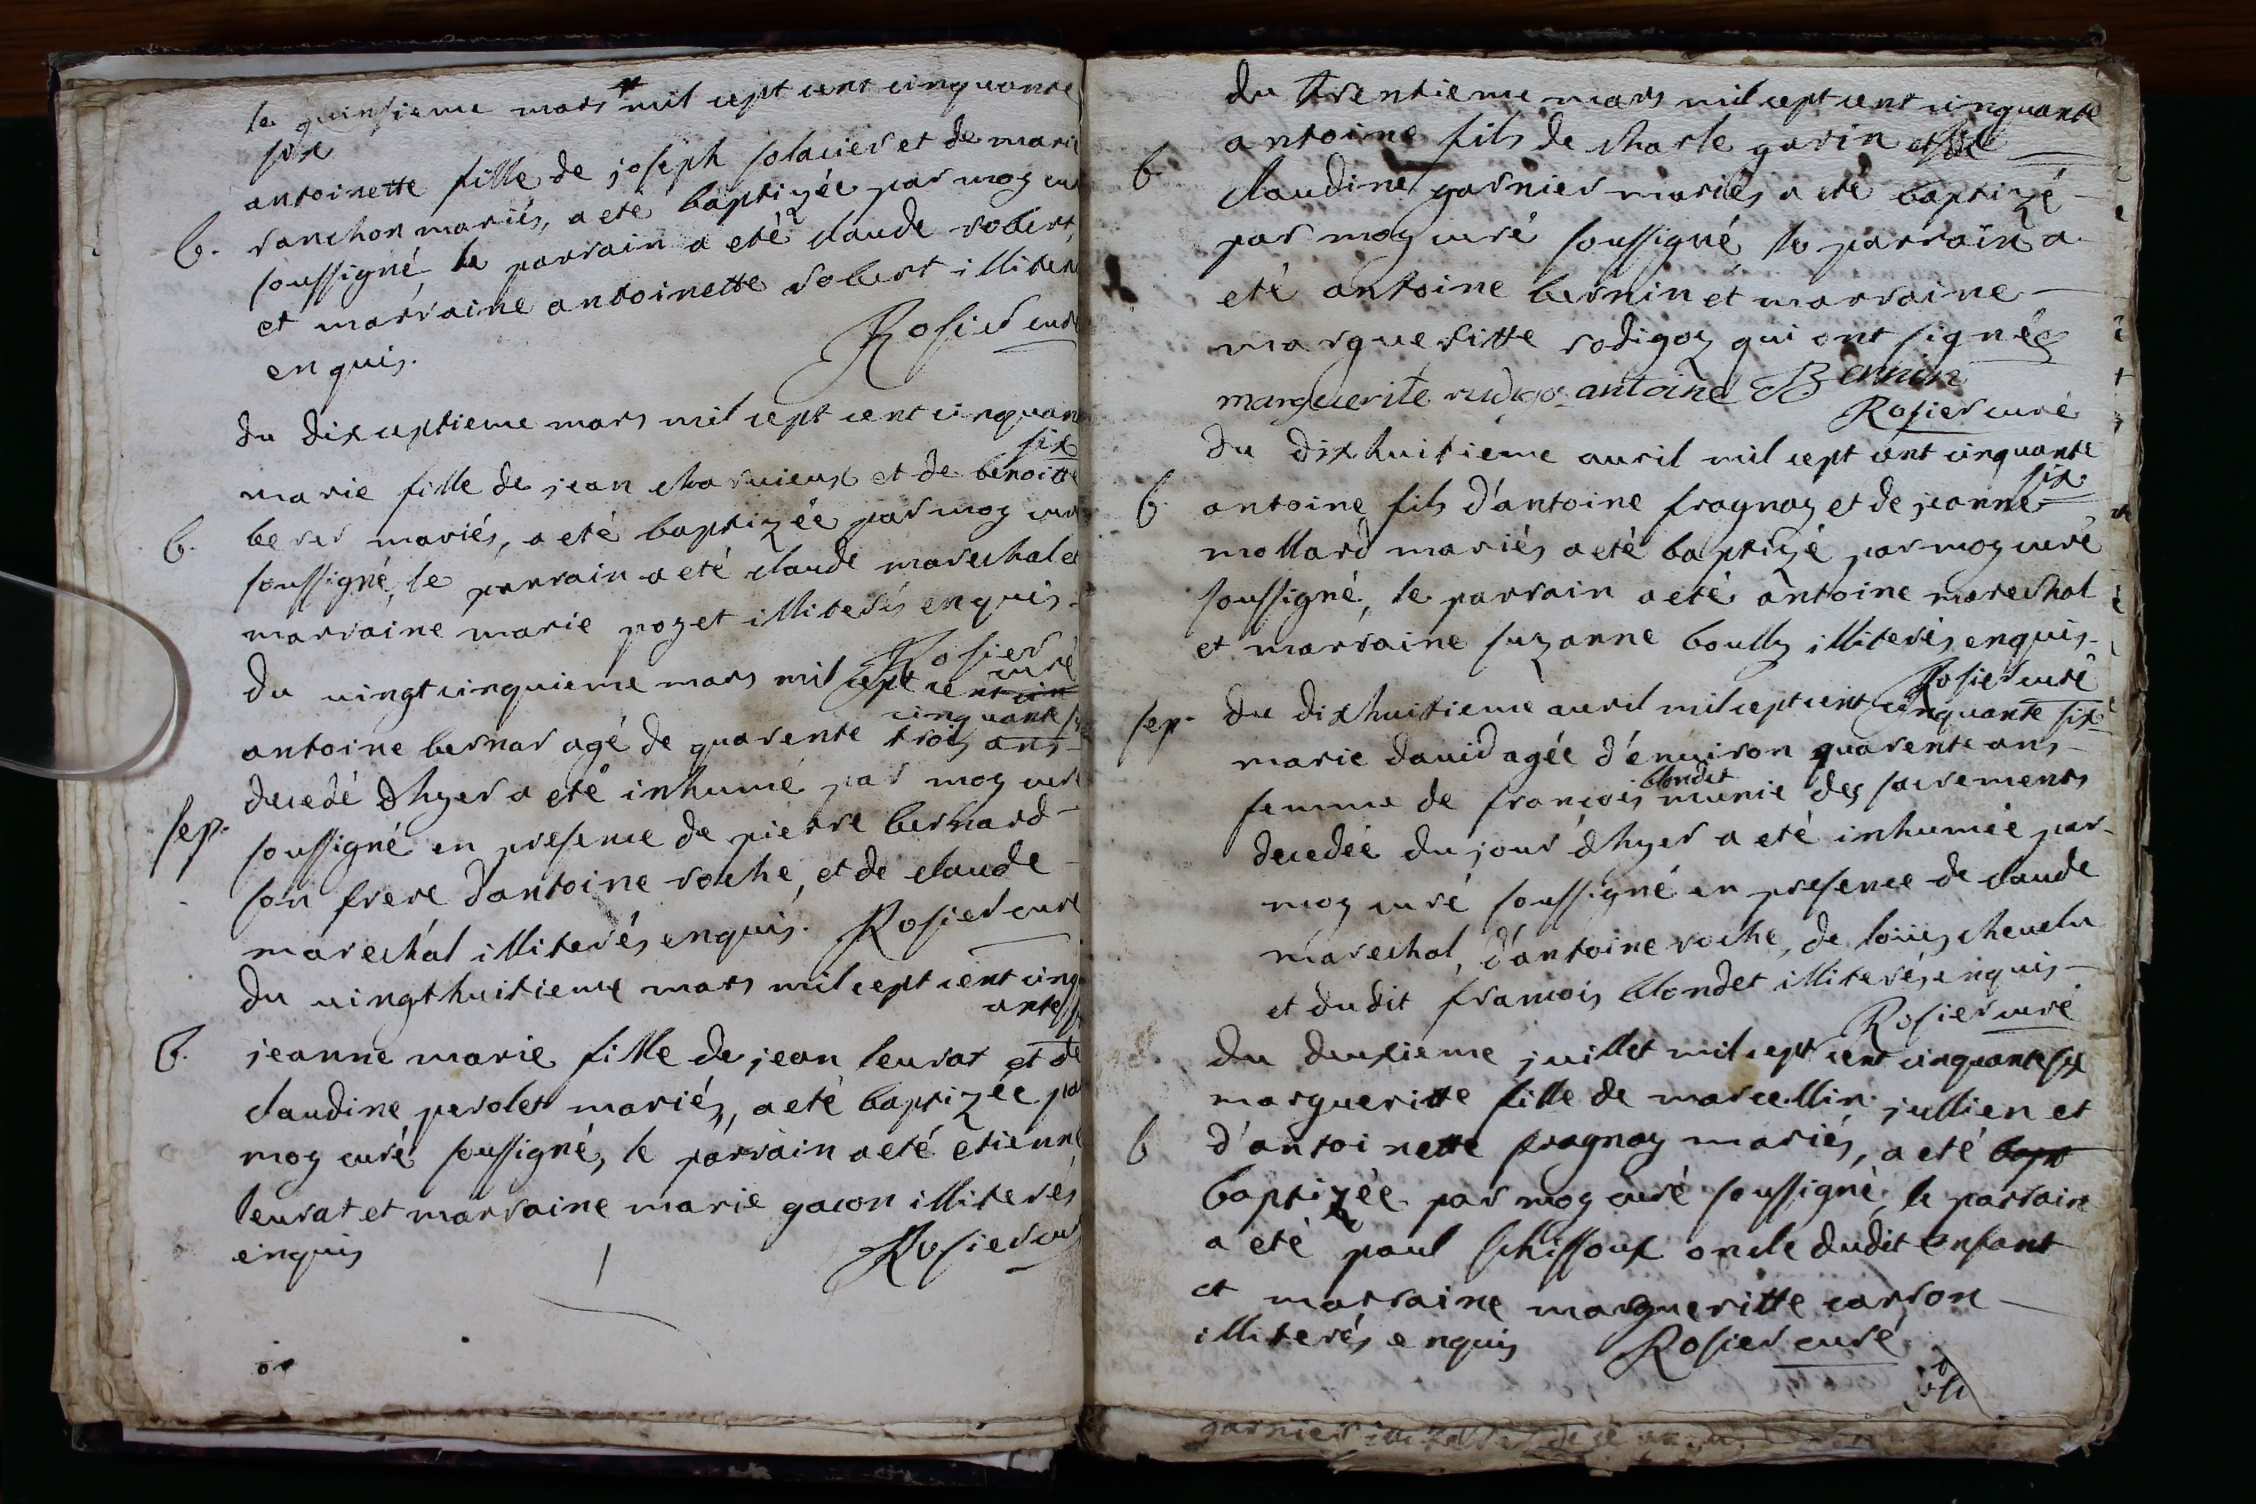 le quinsieme mars mil cept cent cinquante
six
antoinette fille de joseph solacier et de marie
b. ranchon mariés, a eté baptizée par moy cur
soussigné le parrain a eté claude robert,
et marraine antoinette robert illiter
enquis. Rosier curé
du dix ceptieme mars mil cept cent cinquan
six
marie fille de jean charvieux et de benoitte
b. berer mariés, a eté baptizée par moy cur
soussigné, le parrain a eté claude mareschal et
marraine marie poyet illiterés enquis.
Rosier curé
du vingt cinquieme mars mil cept cent cin
cinquante six
antoine bernar agé de quarente trois ans
decedé d'hyer a eté inhumé par moy curé
sep. soussigné en presence de pierre bernard
son frere d'antoine roche, et de claude
mareschal illiterés enquis. Rosier curé
du vingt huitieme mars mil cept cent cinqu
ante six
b. jeanne marie fille de jean leurat et de
claudine perolet mariés, a eté baptizée pa
moy curé soussigné, le parrain a eté etienne
leurat et marraine marie gacon illiterés
enquis Rosier cur
du trentieme mars mil cept cent cinquante
antoine fils de charle garin et de
b. claudine garnier mariés a eté baptizé
par moy curé soussigné, le parrain a
eté antoine bernin et marraine
margueritte rodigoy qui ont signés
marguerite rudigoz antoine Bernin
Rosier curé
du dix huitieme avril mil cept cent cinquante
six
b. antoine fils d'antoine fragnay et de jeanne
mollard mariés a eté baptizé par moy curé
soussigné, le parrain a eté antoine mareschal
et marraine suzanne boully illiterés enquis.
Rosier curé
sep. du dix huitieme avril mil cept cent cinquante six
marie david agée d'environ quarente ans
femme de françois blondet munie des sacrements
decedée du jour d'hyer a eté inhumée par
moy curé soussigné en presence de claude
mareschal, d'antoine roche, de loüis chevelu
et dudit francois blondet illiterés enquis
Rosier curé
du deuxieme juillet mil cept cent cinquante six
margueritte fille de marcellin jullien et
b d'antoinette fragnay mariés, a eté bapt
baptizée par moy curé soussigné, le parrain
a eté paul schissoux oncle dudit enfant
et marraine margueritte carron
illiterés enquis Rosier curé
garnier